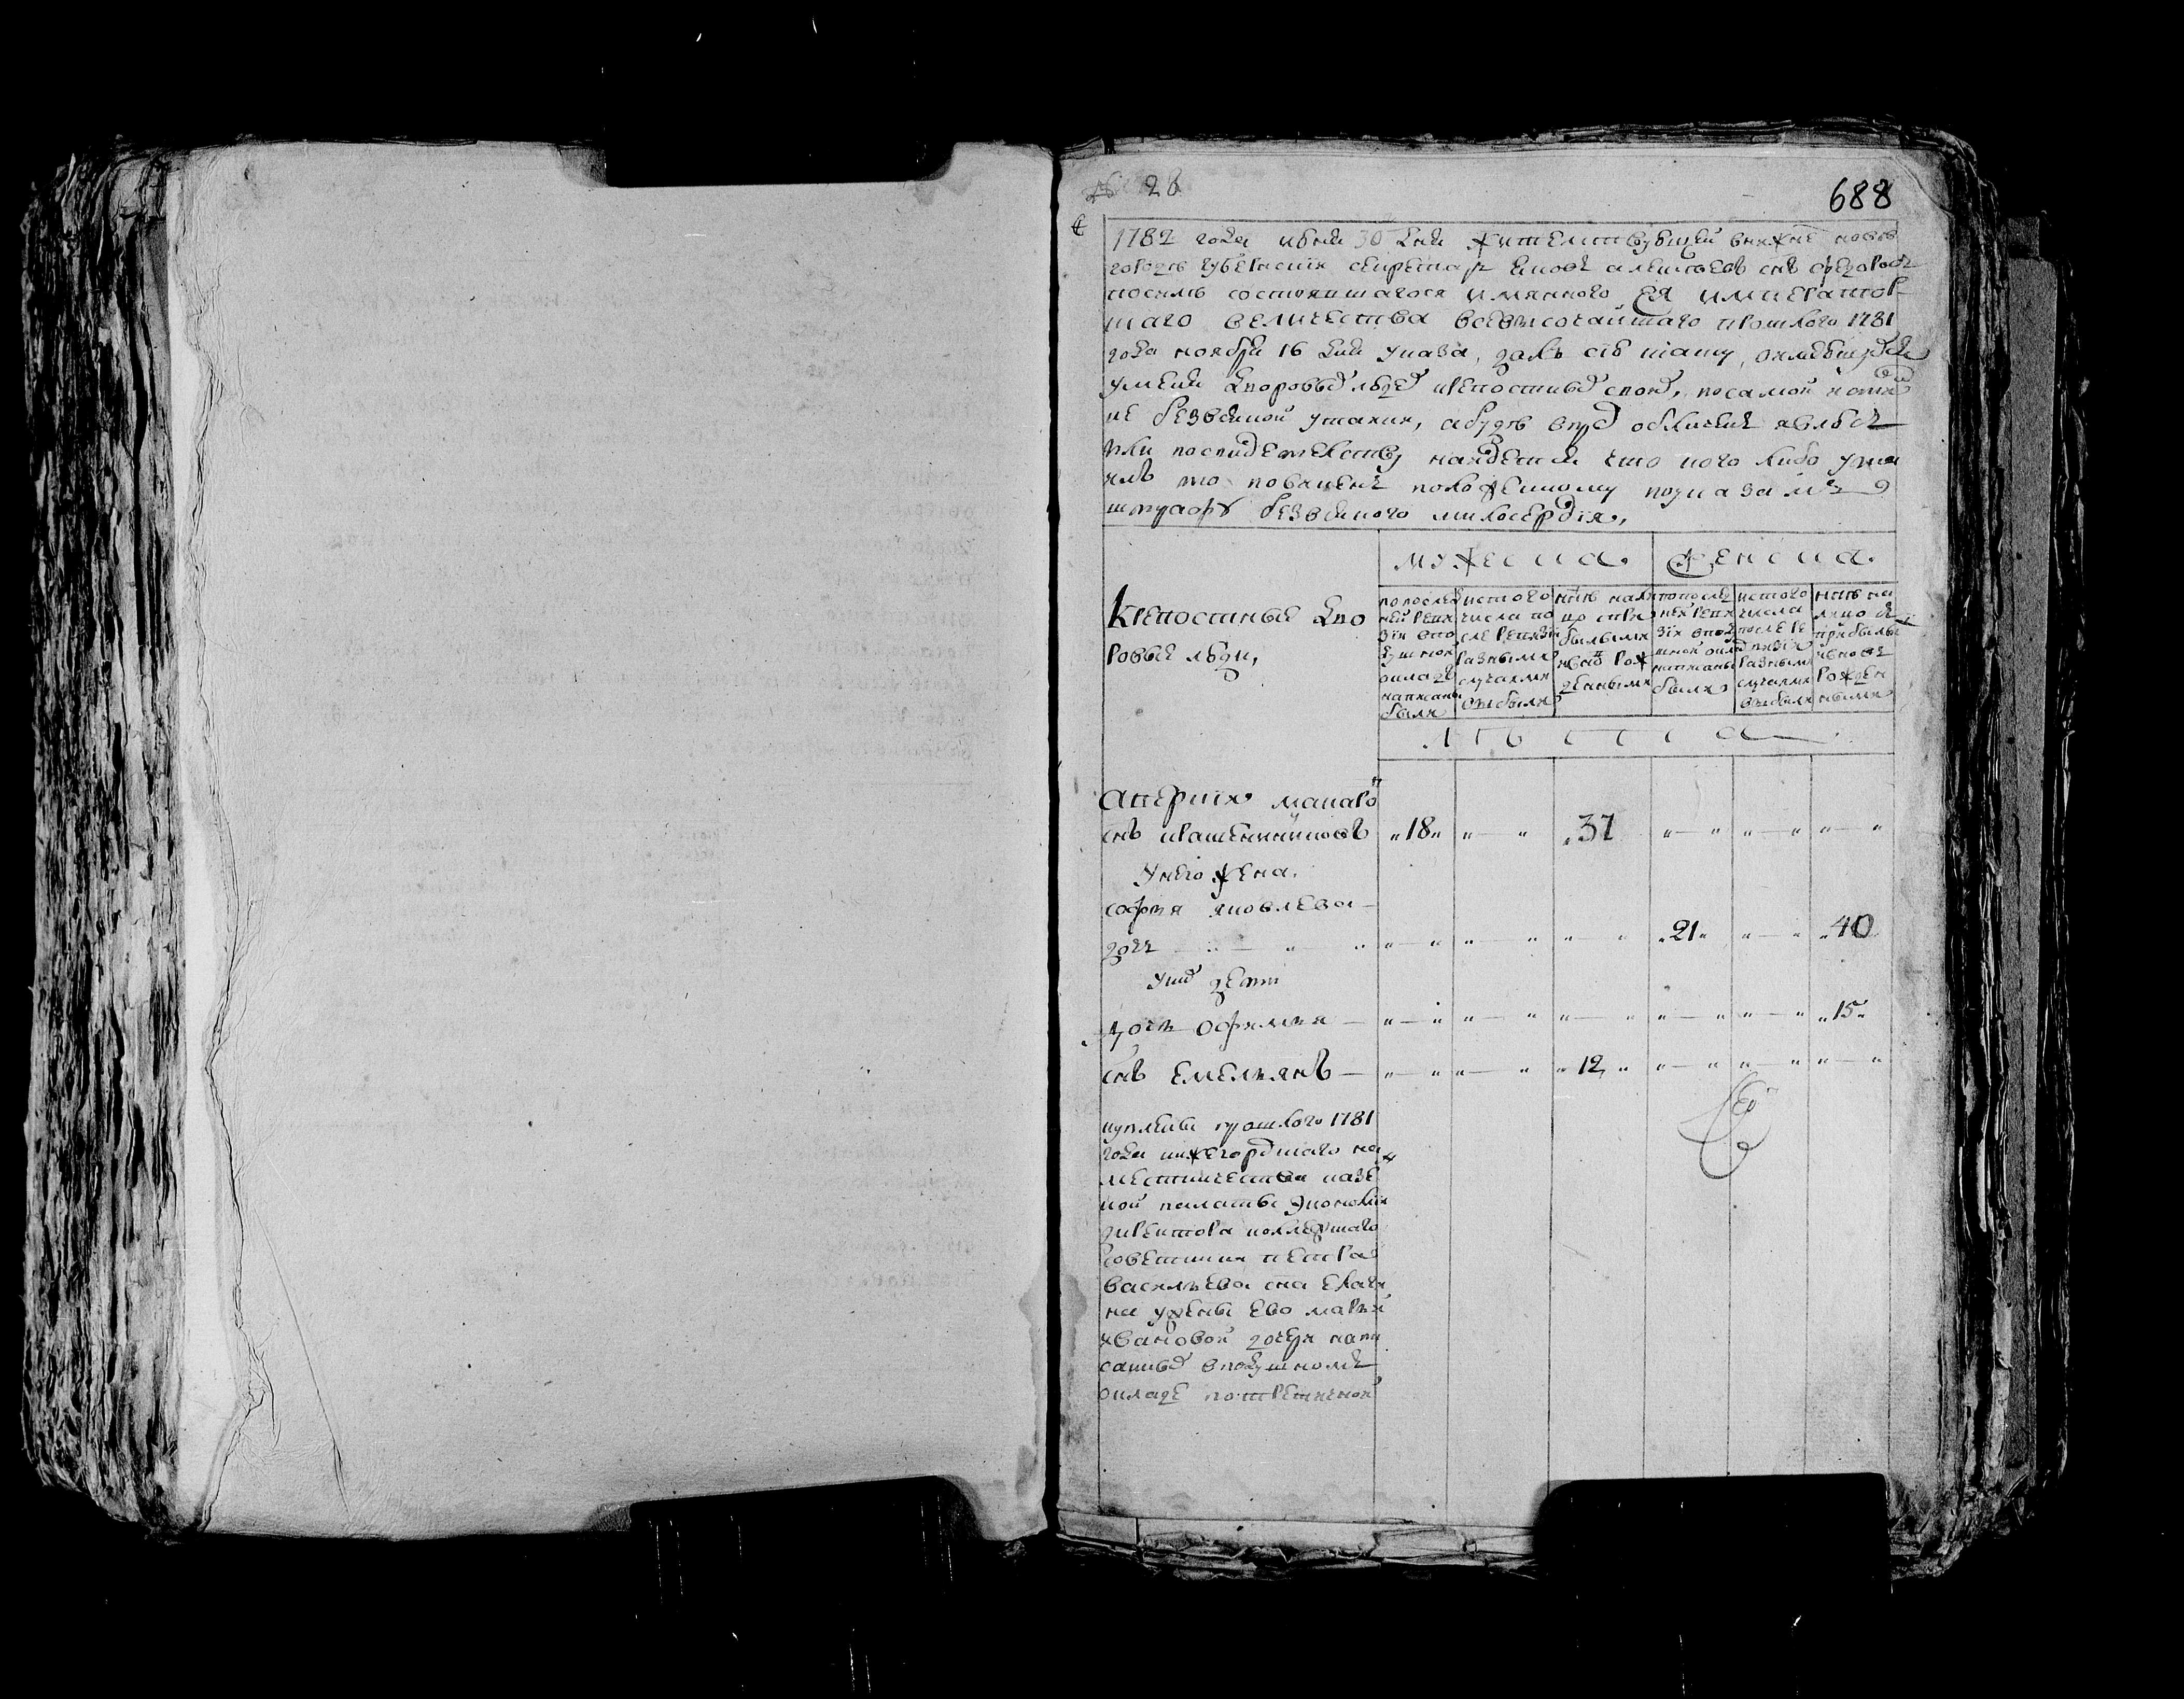 28
688
1782 года июня 30 дня жителствующей внижне новѣ
городѣ губернскии секретарь яковъ алексѣевъ снъ
посилѣ состоявшагося имянного ея император
скаго величества всевысочайшаго прошлого 1781
года ноября 16 дня указа, далъ сію скаску, оимѣющихся
уменя дворовыхъ людей крепостныхъ своихъ, посамой истин
не безвсякой утайки, абудѣ впредь обличенъ явлюсь
или посвидетелству найдется что кого либо ута
илъ то повиненъ положенному поуказамъ
штрафу безвсякого милосердия,
мужеска.
женска.
Крепостные дво
ровые люди,
попослед
ней реви
зіи впо
душной
окладъ
написаны
были
исного
числа по
сле ревизіи
разными
случаями
выбыли
нынѣ нали
цо спри
былыми
ивновь рож
денными
попослед
ней реви
зіи впод
шной окладъ
написаны
были
истого
числа
после ре
визіи
разными
случаями
выбыли
нынѣ на
лицо съ
прибылы
ивновь
рожден
ными
лѣта
аверкия макаро
снъ крашенинниковъ „18„ „ — „ „37 „ — „ „ — „ „ — „
Унего жена.
софья яковлева
дочь „ — „ „ — „ „ — „ „ „ „21„ „ — „ „40
Уних дети
дочь офимья — „ — „ „ — „ „ — „ „ — „ „ — „ „15„
снъ емельянъ — „ — „ „ — „ „12 „ „ — „ „ — „ „ — „
куплены прошлого 1781
года нижегородскаго на
местничества казе
ной палаты экономіи
директора коллежскаго
советника петра
васильева сна
на ужены ево марьи
ивановой дочери напи
санные вподушномъ
окладе потретьеной